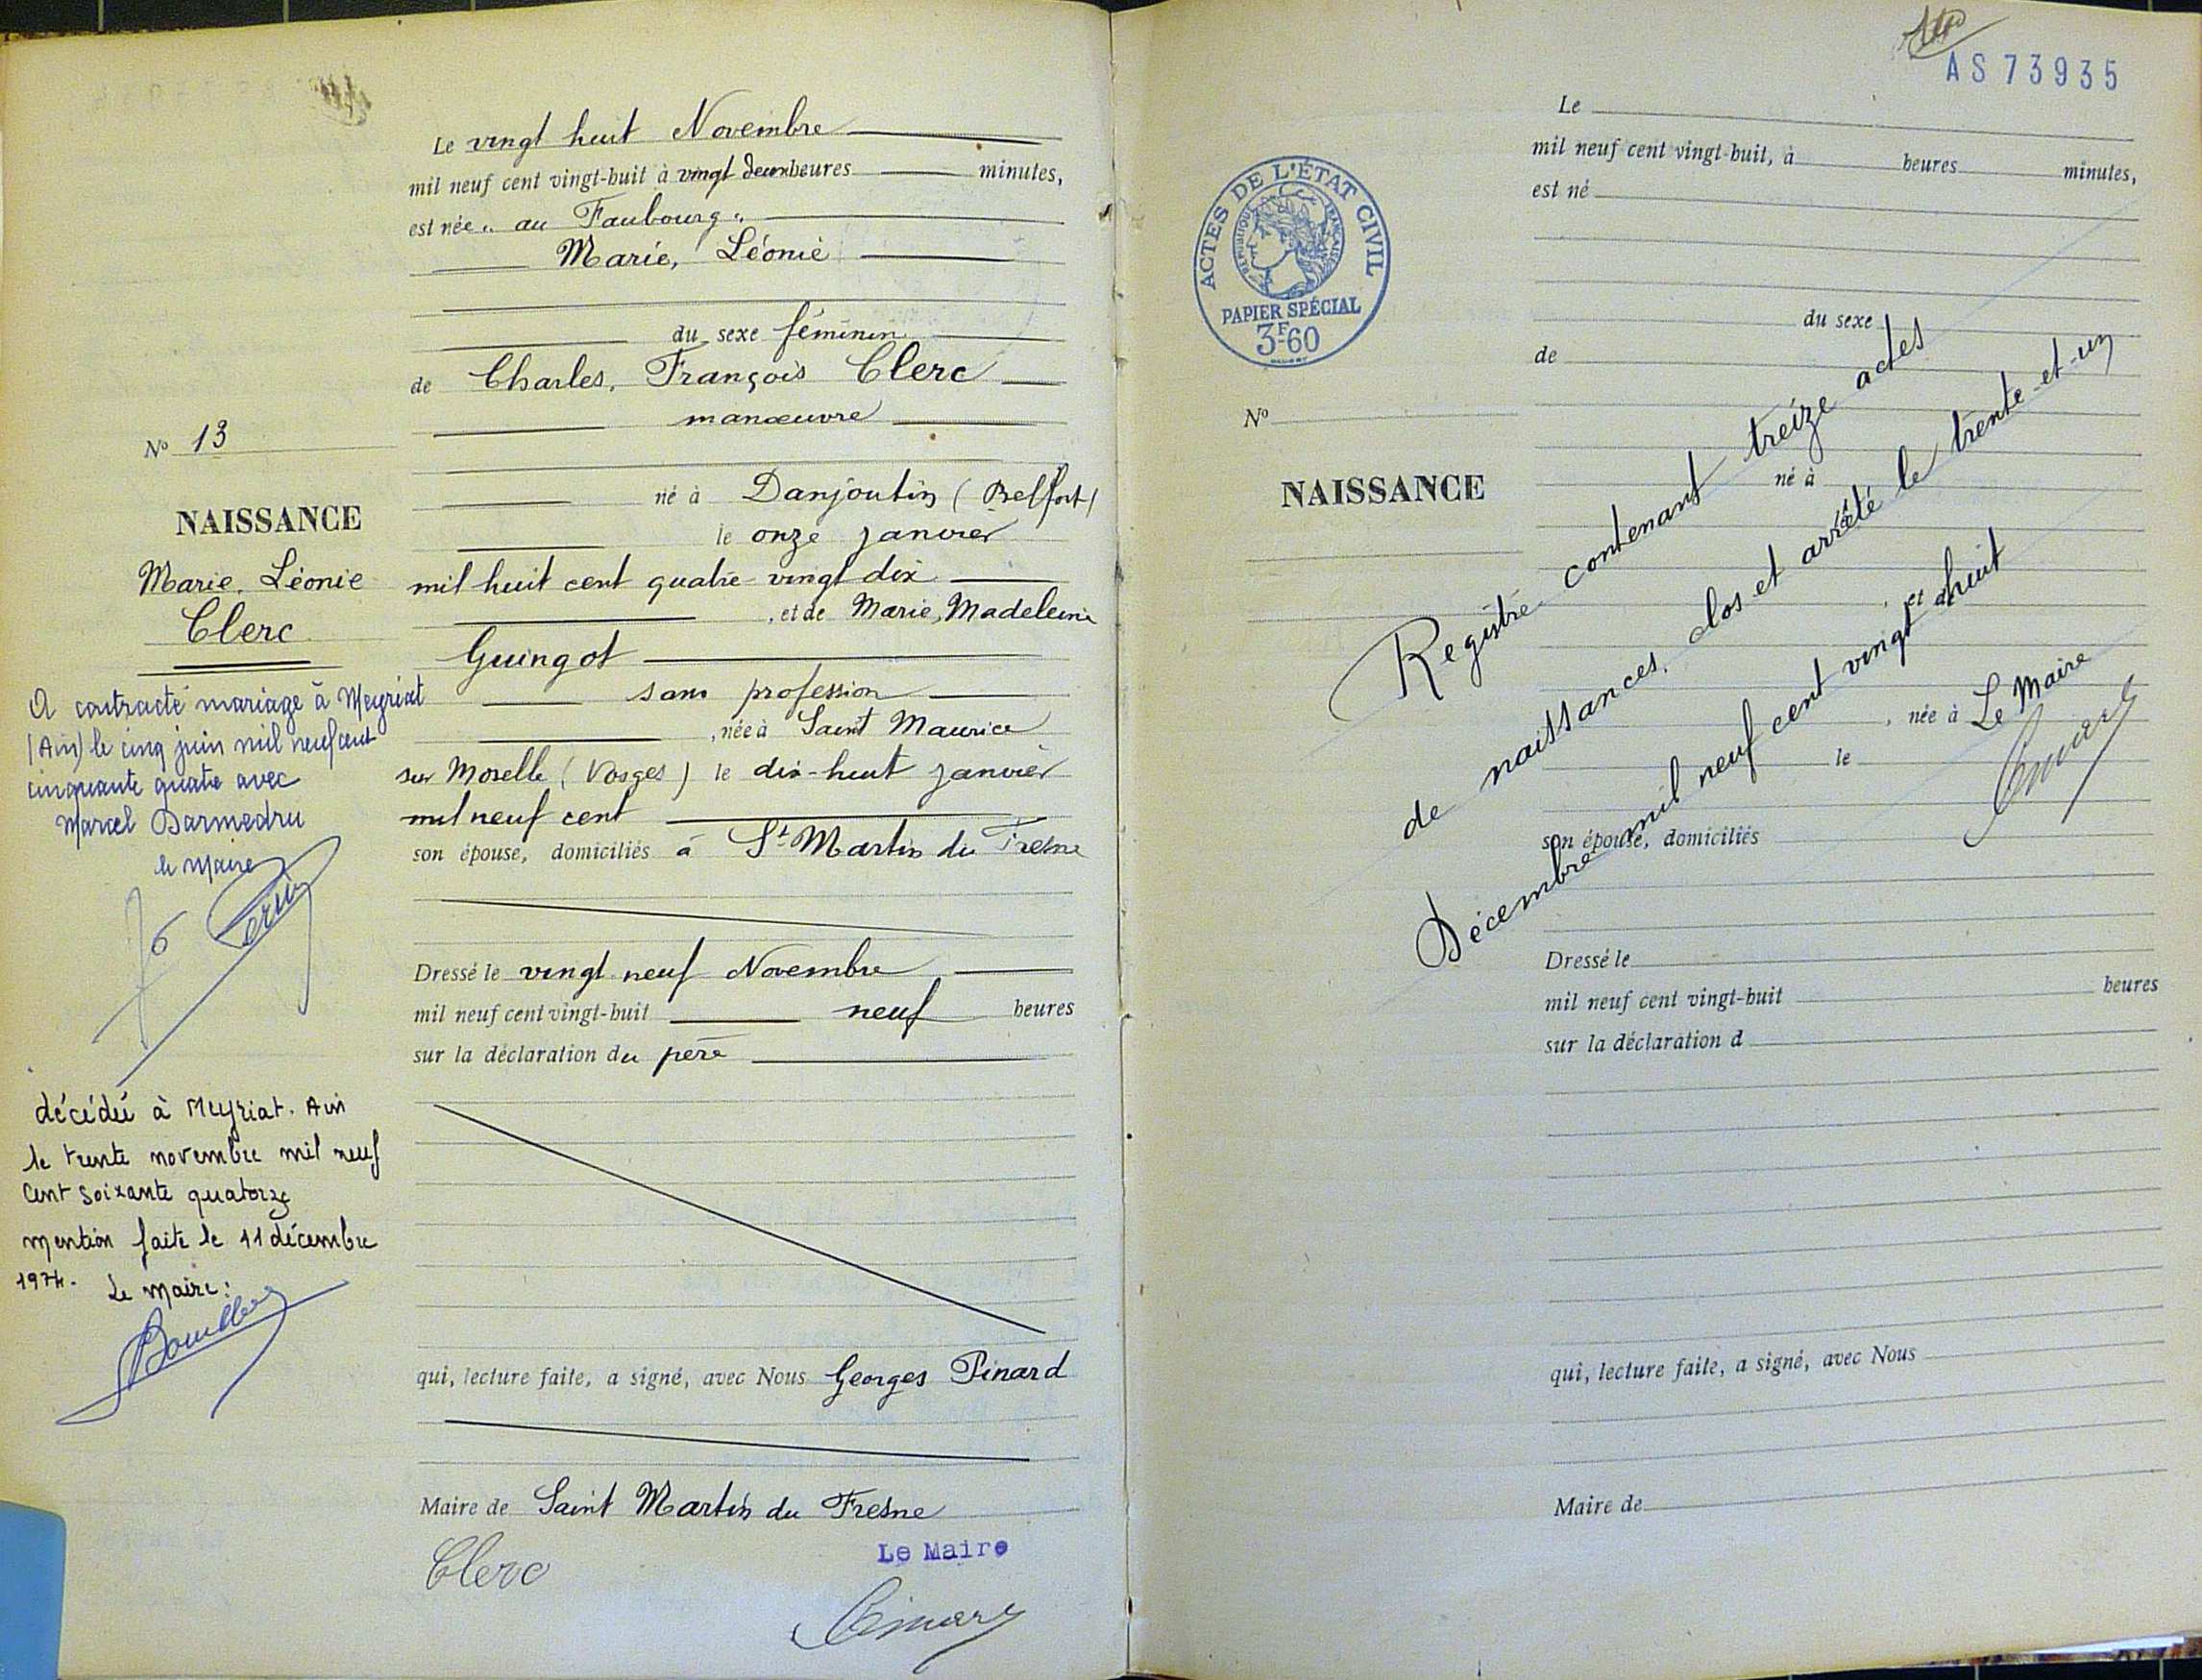 Le vingt huit Novembre
mil neuf cent vingt-huit à vingt deux heures minutes,
est née " au Faubourg "
Marie, Léonie
du sexe féminin
de Charles, François Clerc
manœuvre
né à Danjoutin (Belfort)
le onze janvier
mil huit cent quatre-vingt dix
, et de Marie, Madeleine
Guingot
sans profession
, née à Saint Maurice
sur Moselle (Vosges) le dix-huit janvier
mil neuf cent
son épouse, domiciliés à St Martin du Fresne
Dressé le vingt neuf Novembre
mil neuf cent vingt-huit neuf heures
sur la déclaration du père
qui, lecture faite, a signé, avec Nous Georges Pinard
Maire de Saint Martin du Fresne
Clerc
Le Maire
No 13
NAISSANCE
Marie, Léonie
Clerc
A contracté mariage à Meyriat
(Ain) le cinq juin mil neuf cent
cinquante quatre avec
Marcel Darmedru
le Maire
décédée à Meyriat. Ain
le trente novembre mil neuf
cent soixante quatorze
mention faite le 11 décembre
1974. Le Maire :
AS 73935
ACTES DE L'ÉTAT CIVIL
RÉPUBLIQUE FRANÇAISE
PAPIER SPÉCIAL
3F60
No
NAISSANCE
Le
mil neuf cent vingt-huit, à heures minutes,
est né
du sexe
de
né à
, et de
, née à
le
son épouse, domiciliés
Dressé le
mil neuf cent vingt-huit heures
sur la déclaration d
qui, lecture faite, a signé, avec Nous
Maire de
Registre contenant treize actes
de naissances, clos et arrêté le trente-et-un
Décembre mil neuf cent vingt huit
Le Maire